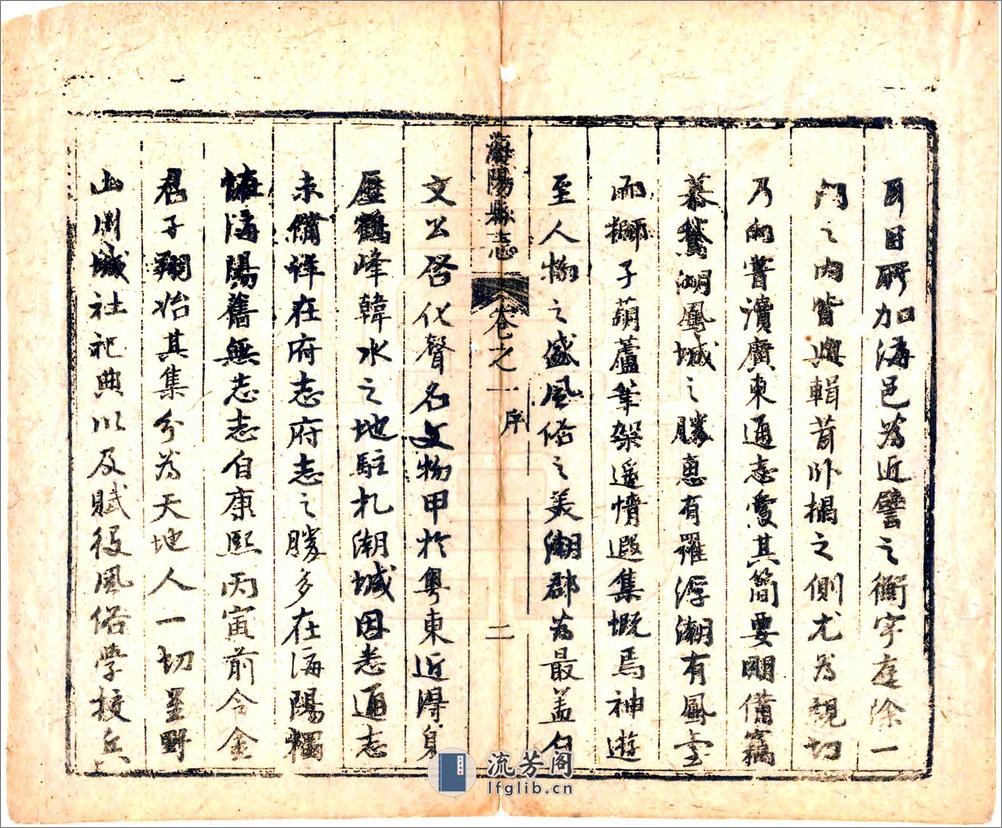 耳目所加海邑為近譬之衡宇庭除一
門之內皆輿輯者卧榻之側尤為親切
乃向嘗瀆廣東通志愛其簡要明備竊
慕鵞湖鳳城之勝惠有羅浮潮有鳳臺
而椰子葫蘆筆架遥情遐集慨焉神遊
至人物之盛風俗之美潮郡為最盖自
海陽縣志 卷之一 序 二
文公啓化聲名文物甲於粵東近得身
歷鶴峰韓水之地駐札潮城因悉通志
未備詳在府志府志之勝多在海陽獨
惟海陽舊無志志自康熙丙寅前令金
君子翔始其集分為天地人一切星野
山川城社祀典以及賦役風俗學校兵
流芳阁
lfglib.cn